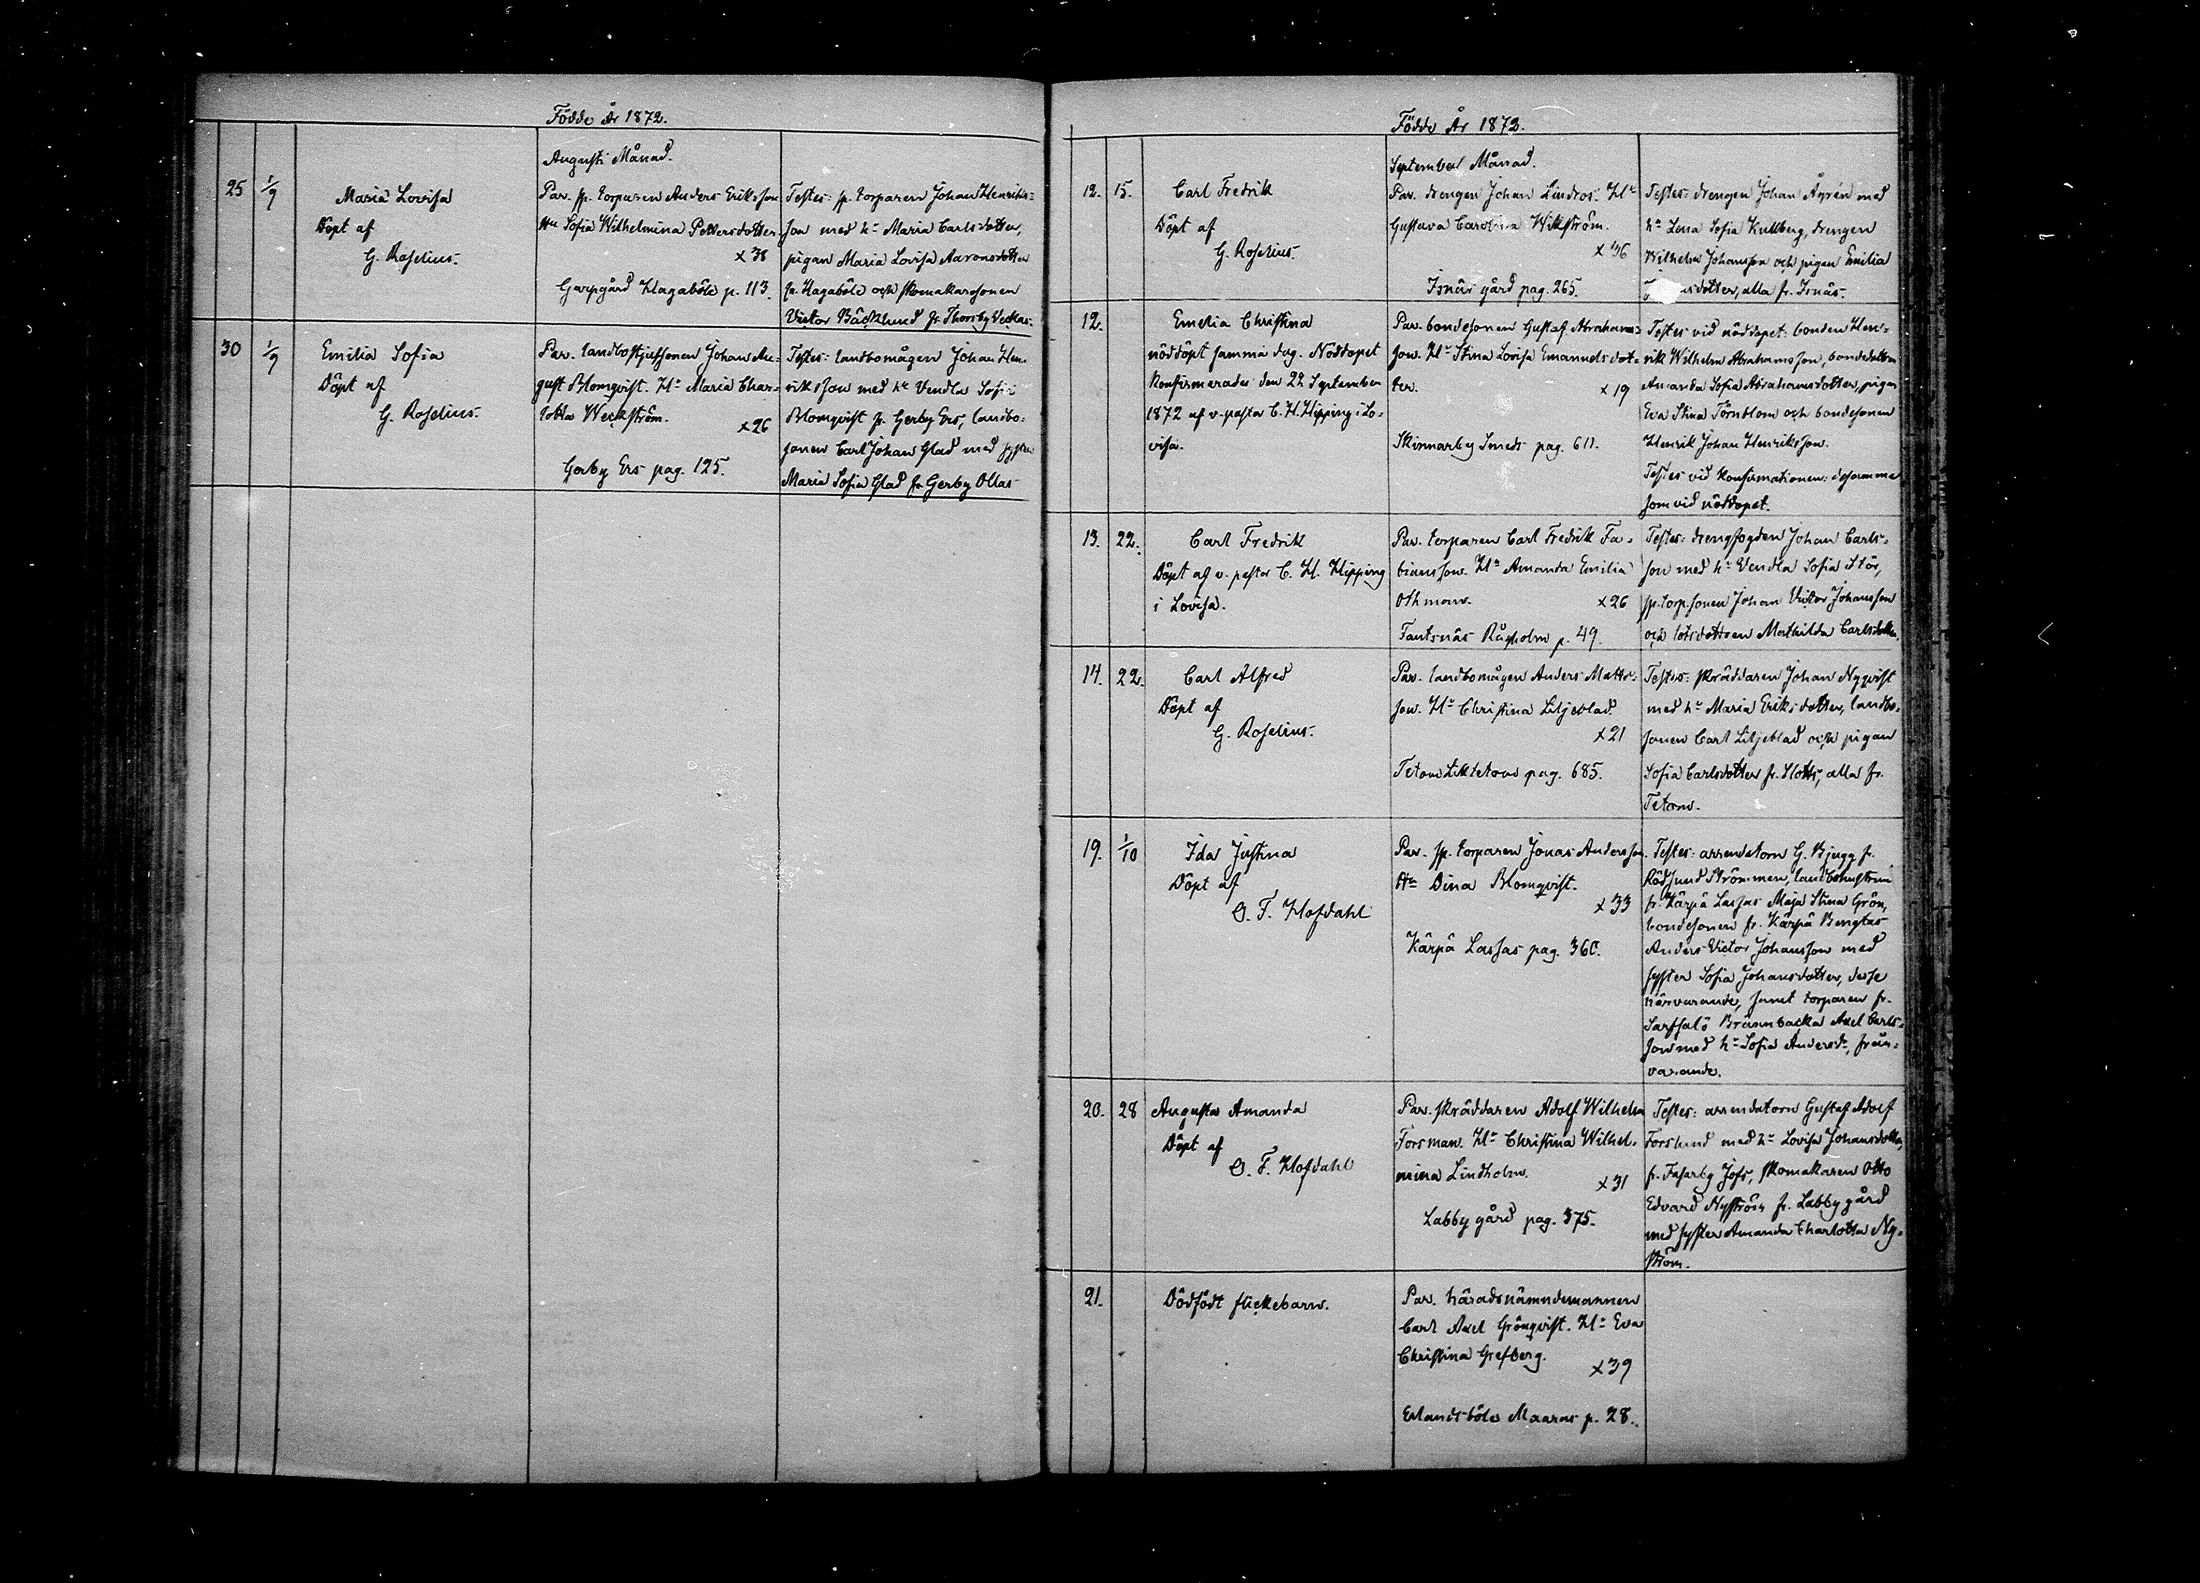 Födde År 1872.
Augusti Månad.
25 1/9 Maria Lovisa
Döpt af
G. Roselius.
Par. sp. torparen Anders Eriksson
Hu Sofia Wilhelmina Pettersdotter
x 38
Garpgård Hagaböle p. 113.
Testes: sp. torparen Johan Henriks-
son med hu Maria Carlsdotter,
pigan Maria Lovisa Aaronsdotter
fr. Hagaböle och skomakaresonen
Victor Bäcklund fr. Thorsby Veckas.
30 1/9 Emilia Sofia
Döpt af
G. Roselius.
Par. landbostjufsonen Johan Au-
gust Blomqvist. Hu Maria Char-
lotta Weckström.
x 26
Gerby Ers pag. 125.
Testes: landbomågen Johan Hen-
riksson med hu Vendla Sofia
Blomqvist fr. Gerby Ers, landbo-
sonen Carl Johan Glad med syster
Maria Sofia Glad fr. Gerby Ollas
Födde År 1872.
September Månad.
12. 15. Carl Fredrik
Döpt af
G. Roselius.
Par. drengen Johan Lindros. Hu
Gustava Carolina Wikström.
x 36
Isnäs gård pag. 265.
Testes: drengen Johan Ågren med
hu Lena Sofia Kullberg, drengen
Wilhelm Johansson och pigan Emilia
alla fr. Isnäs.
12. Emelia Christina
nöddöpt samma dag. Nöddopet
konfirmerades den 22 September
1872 af v. pastor C. H. Hipping i Lo-
visa.
Par. bondesonen Gustaf Abrahams-
son. Hu Stina Lovisa Emanuelsdot-
ter.
x 19
Skinnarby Smeds pag. 611.
Testes vid nöddopet: bonden Hen-
rik Wilhelm Abrahamsson, bondedottern
Amanda Sofia Abrahamsdotter, pigan
Eva Stina Törnblom och bondesonen
Henrik Johan Henriksson.
Testes vid konfirmationen: desamma
som vid nöddopet.
13. 22. Carl Fredrik
Döpt af v. pastor C. H. Hipping
i Lovisa.
Par. torparen Carl Fredrik Fa-
biansson. Hu Amanda Emilia
Othman.
x 26
Fantsnäs Rågholm p. 49.
Testes: drengfogden Johan Carls-
son med hu Vendla Sofia Stör,
sp. torpsonen Johan Victor Johansson
och lotsdottren Mathilda Carlsdotter.
14. 22. Carl Alfred
Döpt af
G. Roselius.
Par. landbomågen Anders Matts-
son. Hu Christina Liljeblad.
x 21
Tetom Liktetom pag. 685.
Testes: skräddaren Johan Nyqvist
med hu Maria Eriksdotter, landbo-
sonen Carl Liljeblad och pigan
Sofia Carlsdotter fr. Klotts, alla fr.
Tetom.
19. 1/10 Ida Justina
Döpt af
O. F. Hofdahl
Par. sp. torparen Jonas Andersson.
Hu Dina Blomqvist.
x 33
Kärpä Lassas pag. 360.
Testes: arrendatorn G. Bjugg fr.
Rädsund Strömmen, landbohustrun
fr. Kärpä Lassas Maja Stina Grön,
bondesonen fr. Kärpä Bengtas
Anders Victor Johansson med
syster Sofia Johansdotter, desse
närvarande, samt torparen fr.
Sarfsalö Brännbacka Axel Carls-
son med hu Sofia Andersdr, från-
varande.
20. 28 Augusta Amanda
Döpt af
O. F. Hofdahl
Par. skräddaren Adolf Wilhelm
Forsman. Hu Christina Wilhel-
mina Lindholm.
x 31
Labby gård pag. 375.
Testes: arrendatorn Gustaf Adolf
Forslund med hu Lovisa Johansdotter,
fr. Fasarby Jofs, skomakaren Otto
Edvard Nyström fr. Labby gård
med syster Amanda Charlotta Ny-
ström.
21. Dödfödt flickebarn.
Par. häradsnämndemannen
Carl Axel Grönqvist. Hu Eva
Christina Grefberg.
x 39
Erlandsböle Maaras p. 28.